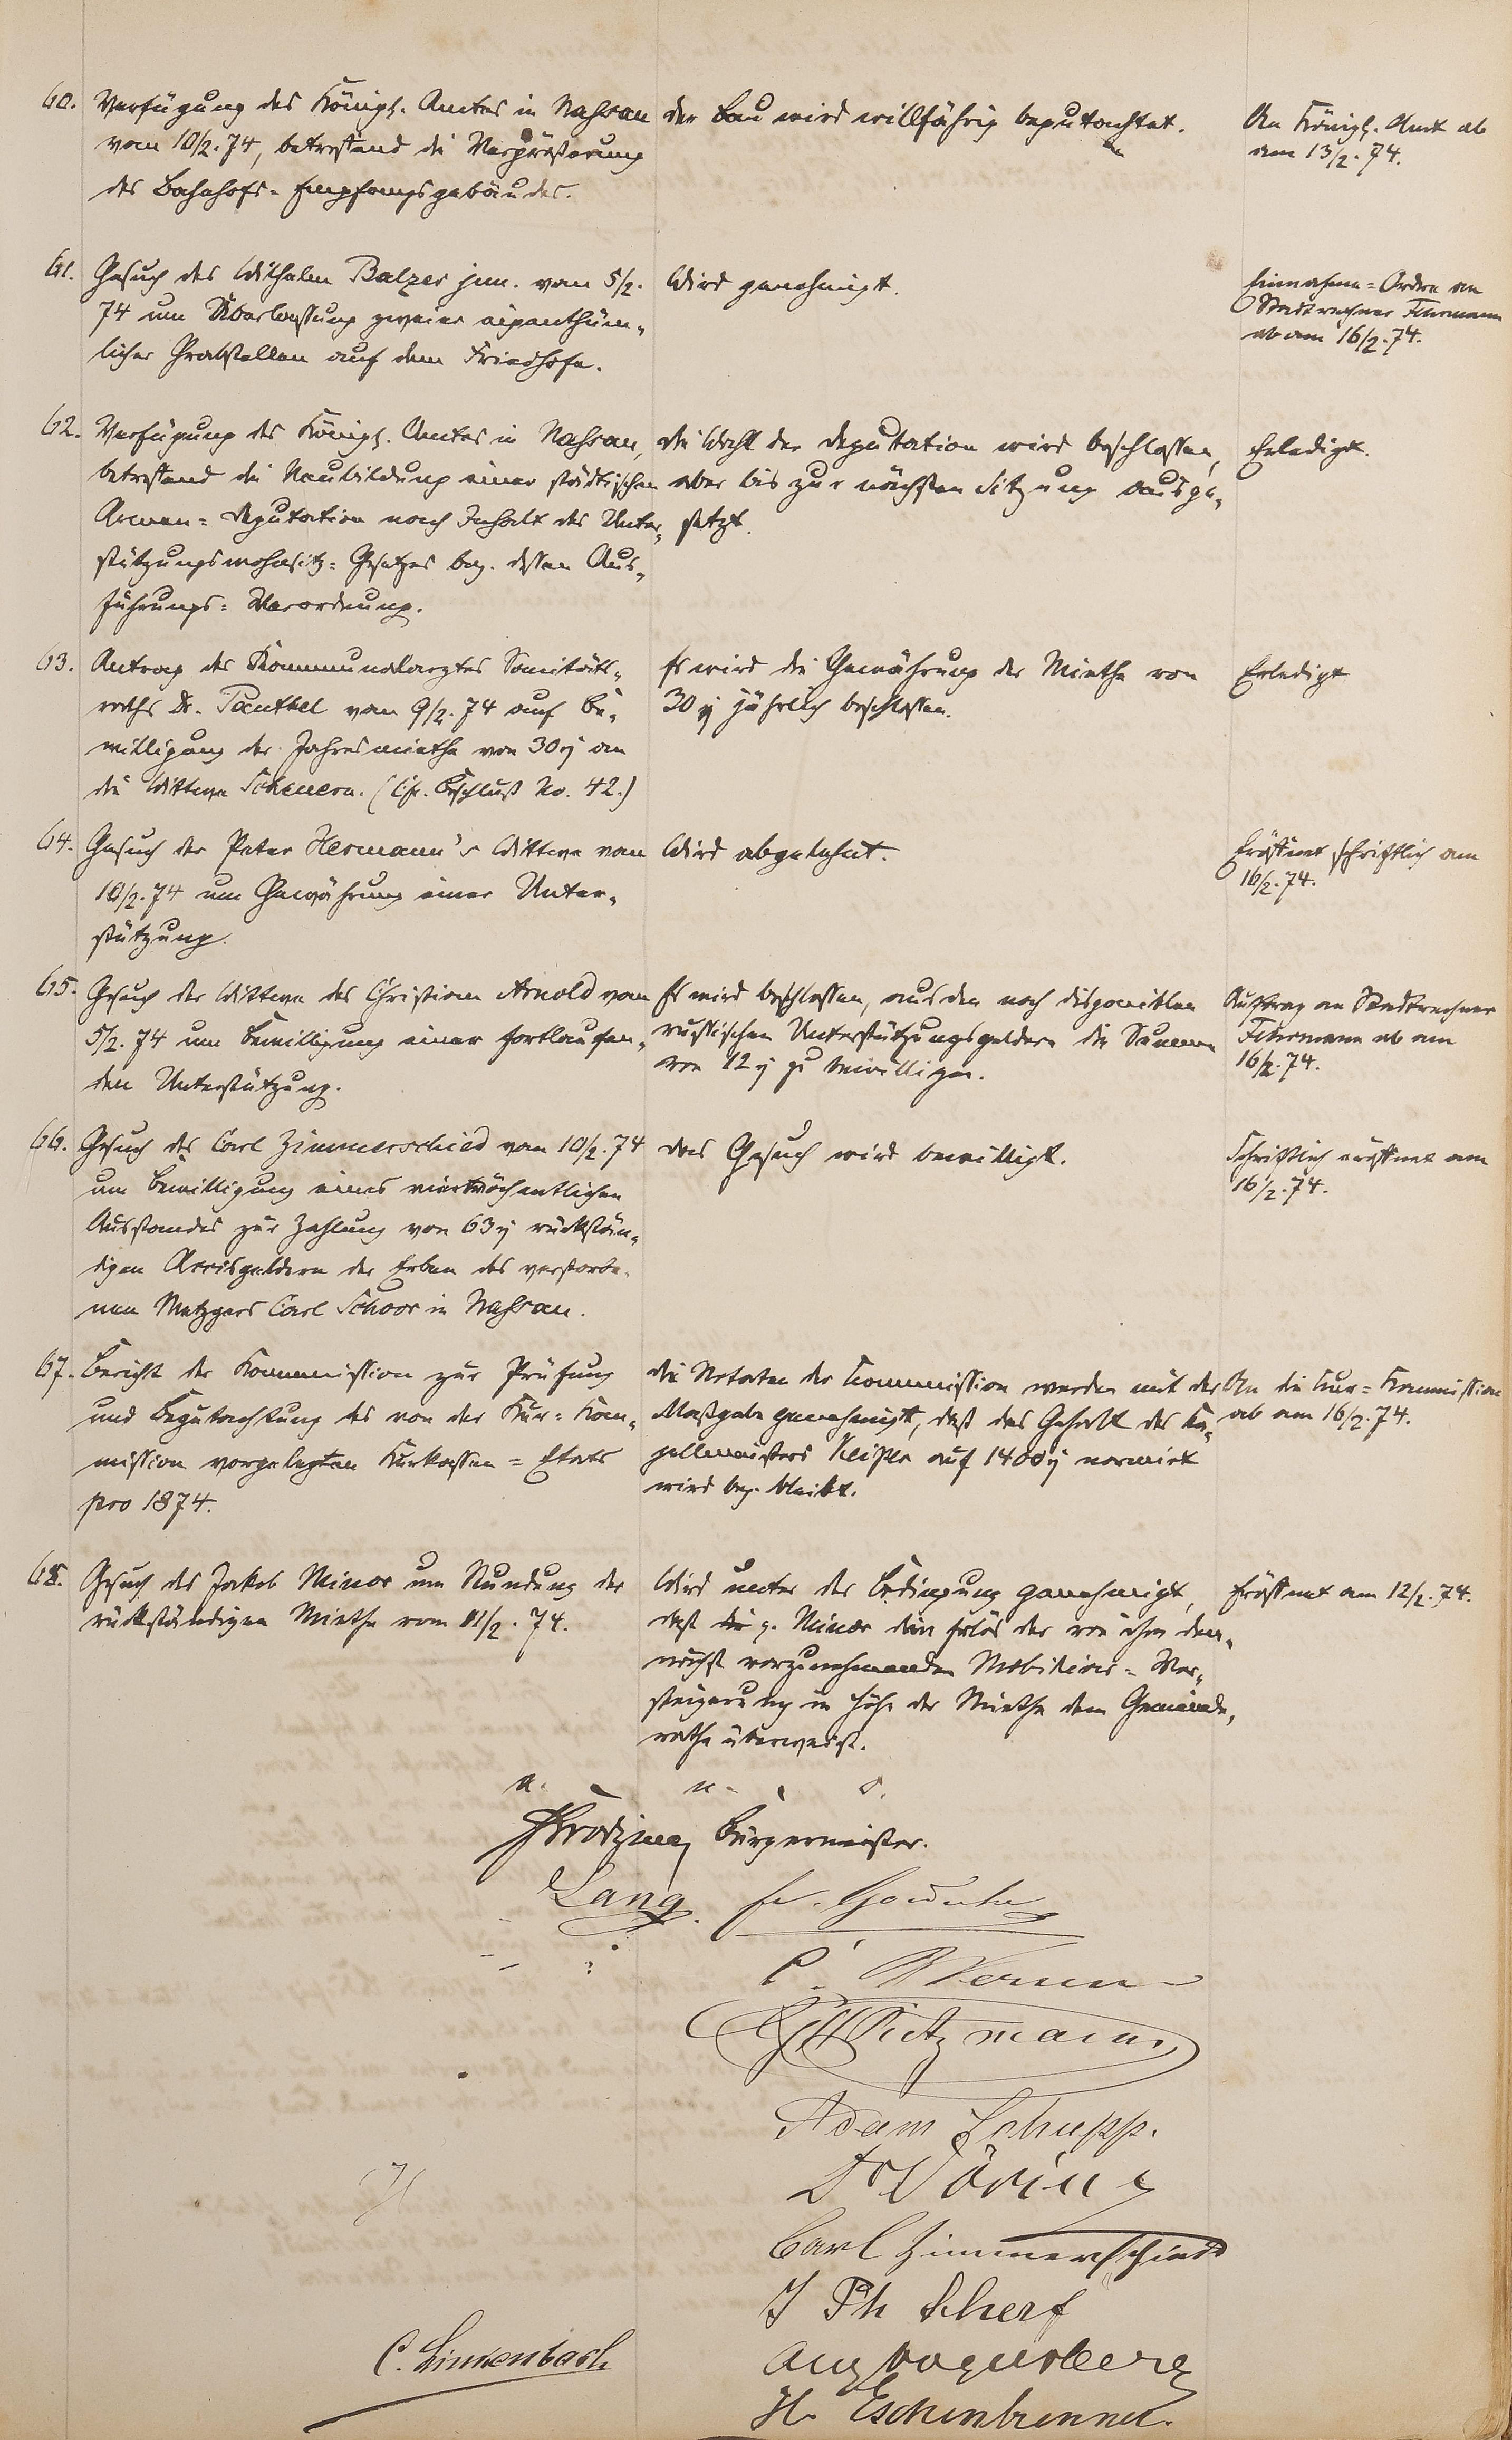 60. Verfügung des Königl. Amtes in Nassau
vom 10/2. 74, betreffend die Vergrößerung
des Bahnhofs-Empfangsgebäudes.
Der Bau wird willfährig begutachtet.
An Königl. Amt ab
am 13/2. 74.
61. Gesuch des Wilhelm Balzer jun. vom 5/2.
74 um Überlassung zweier eigenthüm-
licher Grabstellen auf dem Friedhofe.
Wird genehmigt.
Einnahme-Ordre an
Stadtrechner Fuhrmann
ab am 16/2. 74.
62. Verfügung des Königl. Amtes in Nassau,
betreffend die Neubildung einer städtischen
Armen-Deputation nach Inhalt des Unter-
stützungswohnsitz-Gesetzes bez. dessen Aus-
führungs-Verordnung.
Die Wahl der Deputation wird beschlossen,
aber bis zur nächsten Sitzung ausge-
setzt.
Erledigt.
63. Antrag des Kommunalarztes Sanitäts-
raths Dr. Panthel vom 9/2. 74 auf Be-
willigung der Jahresmiethe von 30 an
die Wittwe Scheuern. (Cfr. Beschluß No. 42.)
Es wird die Gewährung der Miethe von
30 jährlich beschlossen.
Erledigt
64. Gesuch der Peter Hermann's Wittwe vom
10/2. 74 um Gewährung einer Unter-
stützung.
Wird abgelehnt.
Eröffnet schriftlich am
16/2. 74.
65. Gesuch der Wittwe des Christian Arnold vom
5/2. 74 um Bewilligung einer fortlaufen-
den Unterstützung.
Es wird beschlossen, aus den noch disponiblen
russischen Unterstützungsgeldern die Summe
von 12 zu bewilligen.
Auftrag an Stadtrechner
Fuhrmann ab am
16/2. 74.
66. Gesuch des Carl Zimmerschied vom 10/2. 74
um Bewilligung eines vierwöchentlichen
Ausstandes zur Zahlung von 63 rückstän-
digen Accisgeldern der Erben des verstorbe-
nen Metzgers Carl Schoor in Nassau.
Das Gesuch wird bewilligt.
Schriftlich eröffnet am
16/2. 74.
67. Bericht der Kommission zur Prüfung
und Begutachtung des von der Kur-Kom-
mission vorgelegten Kurkassen-Etats
pro 1874.
Die Notaten der Kommission werden mit der
Maßgabe genehmigt, daß das Gehalt des Ka-
pellmeisters auf 1400 normirt
wird bez. bleibt.
An die Kur-Kommission
ab am 16/2. 74.
68. Gesuch des Jakob Minor um Stundung der
rückständigen Miethe vom 11/2. 74.
Wird unter der Bedingung genehmigt,
daß p. Minor den Erlös der von ihm dem-
nächst vorzunehmenden Mobiliar-Ver-
steigerung in Höhe der Miethe dem Gemeinde-
rathe überweist.
Eröffnet am 12/2. 74.
v. u. g.
Bürgermeister.
Lang.
Adam Schupp.
Dr Döring
Carl Zimmerschied
J Ph Scherf
Aug Vogelsberg
C. Linkenbach
H. Eschenbrenner.